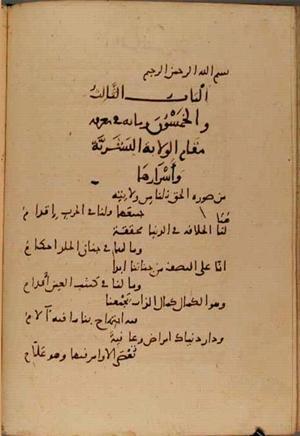 بسم الله الرحمن الرحيم
الباب الثالث
والخمسون ومايه في معرفة
مقام الولاية البشرية
واسرارها
من صورة الحق للناس ولايته
ولنا في الحرب اقدام
لنا الخلافه في الدنيا محققة
وما لنا في جنان الخلد احكام
انا على النصف من جناتنا ابدا
وما لنا في كثيب العين اقدام
وهو الكمال كمال الذات يجمعنا
به ابتهاج بنا ما فيه الام
ودار دنياك امراض وعافية
تعصى الاوامر فيها وهو علام